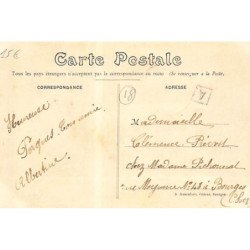 15€
Carte Postale
Tous les pays étrangers n'acceptent pas la correspondance au recto (Se renseigner à la Poste).
CORRESPONDANCE
ADRESSE
Heureuse
Pâques
Albertine
Mademoiselle
Clémence
chez Madame
rue N° 48 à Bourges
Cher